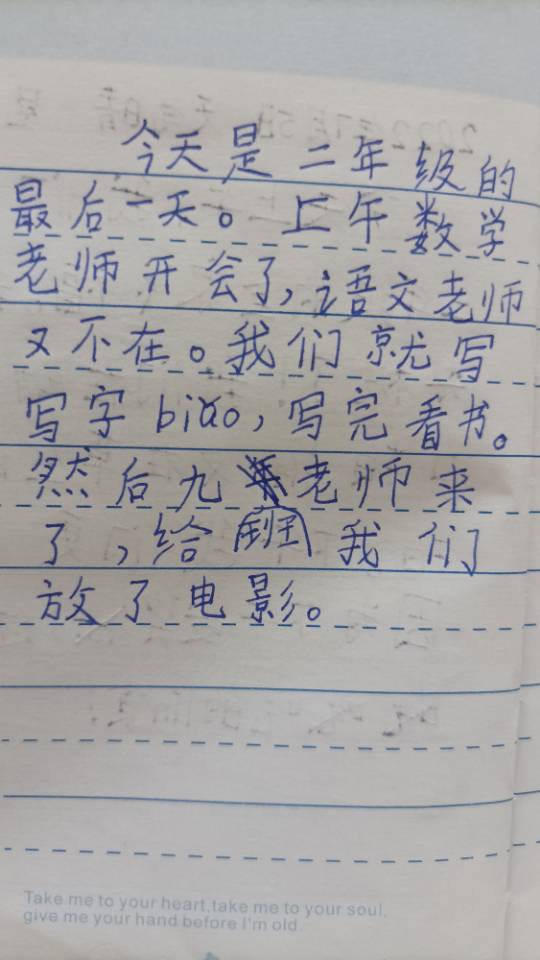 今天是二年级的
最后一天。上午数学
老师开会了,语文老师
又不在。我们就写
写字biao,写完看书。
然后九老师来
了,给班我们
放了电影。
Take me to your heart,take me to your soul,
give me your hand before I'm old.